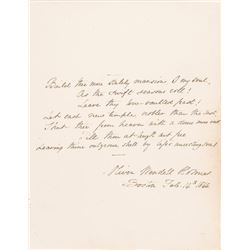 Build thee more stately mansions O my soul,
As the swift seasons roll!
Leave thy low-vaulted past!
Let each new temple, nobler than the last,
Shut thee from heaven with a dome more vast
Till thou at length art free
Leaving thine outgrown shell by life's unresting sea!
Oliver Wendell Holmes
Boston Feb. 14th